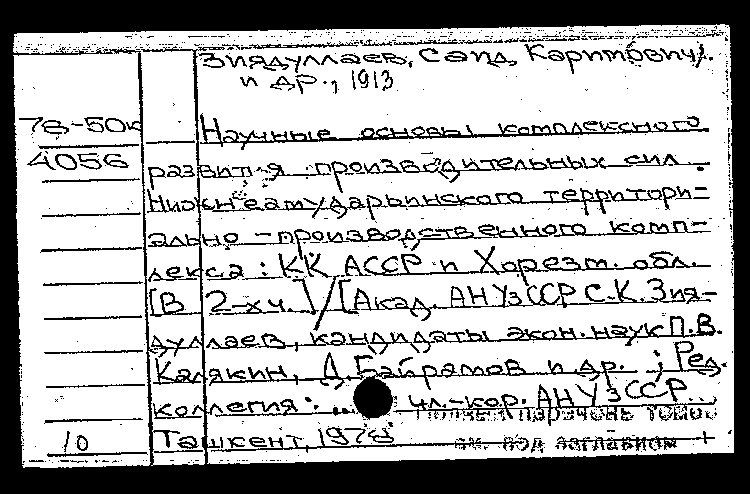 Зиядуллаев, Саид Каримович
и др., 1913
78-50к
Научные основы комплексного
4056
развития производительных сил
Нижнеамударьинского территори-
ально-производственного комп-
лекса: КК АССР и Хорезм. обл.
[В 2-х ч.]/[Акад. АН УзССР С.К. Зия-
дуллаев, кандидаты экон. наук П.В.
Калякин, Д. Байрамов и др. ; Ред.
коллегия: ... чл.-кор. АН УзССР
Полный перечень томов
10 Ташкент, 1978
см. под заглавием +